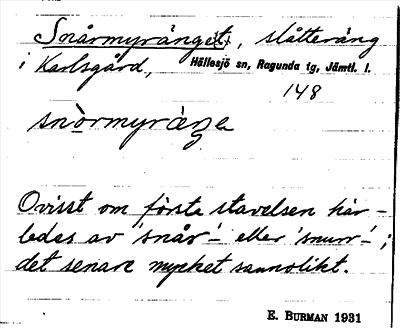 Snårmyränget, slåtteräng
i Karlsgård, Hällesjö sn, Ragunda tg, Jämtl. l.
148
snòrmyrä̀ŋe
Ovisst om första stavelsen här-
ledes av 'snår'- eller 'snurr'-;
det senare mycket sannolikt.
E. BURMAN 1931